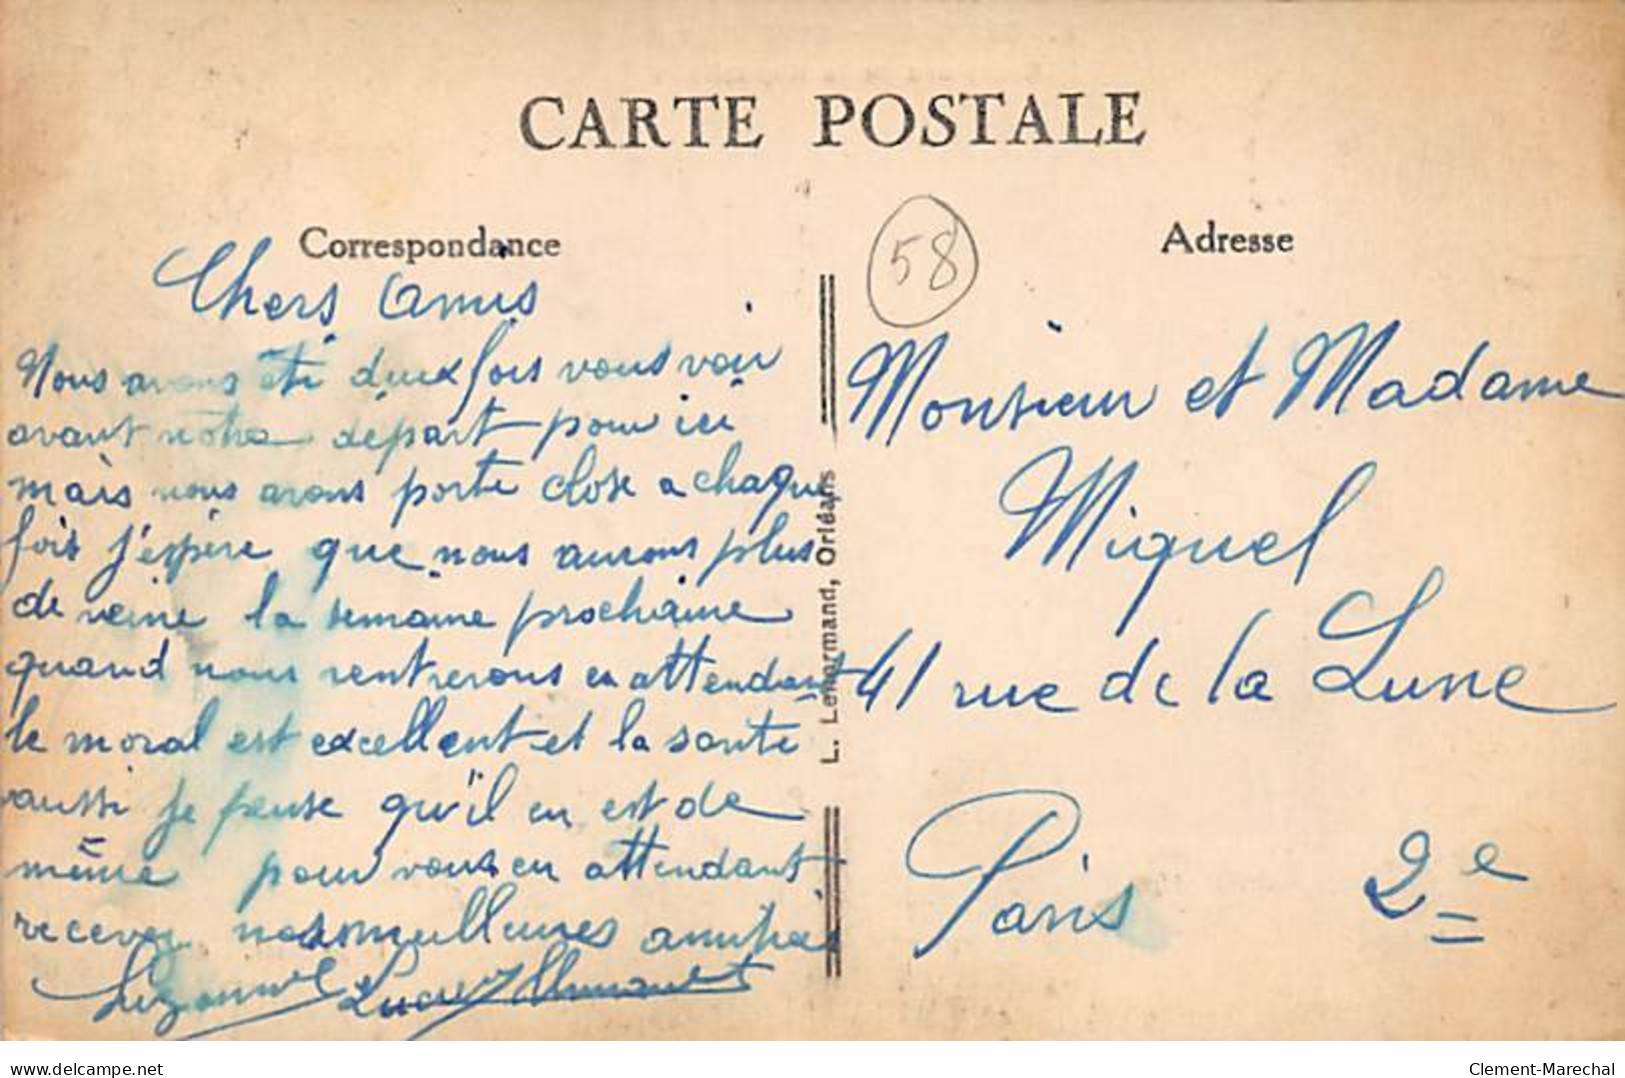 CARTE POSTALE
Correspondance
Chers Amis
Nous avons été deux fois vous voir
avant notre départ pour ici
mais nous avons porte close a chaque
fois j'espère que nous aurons plus
de veine la semaine prochaine
quand nous rentrerons en attendant
le moral est excellent et la santé
aussi je pense qu'il en est de
même pour vous en attendant
recevez nos meilleures amitiés
Suzanne Lucien
L. Lenormand, Orléans
58
Adresse
Monsieur et Madame
Miquel
41 rue de la Lune
Paris 2e
delcampe.net
Clement-Marechal